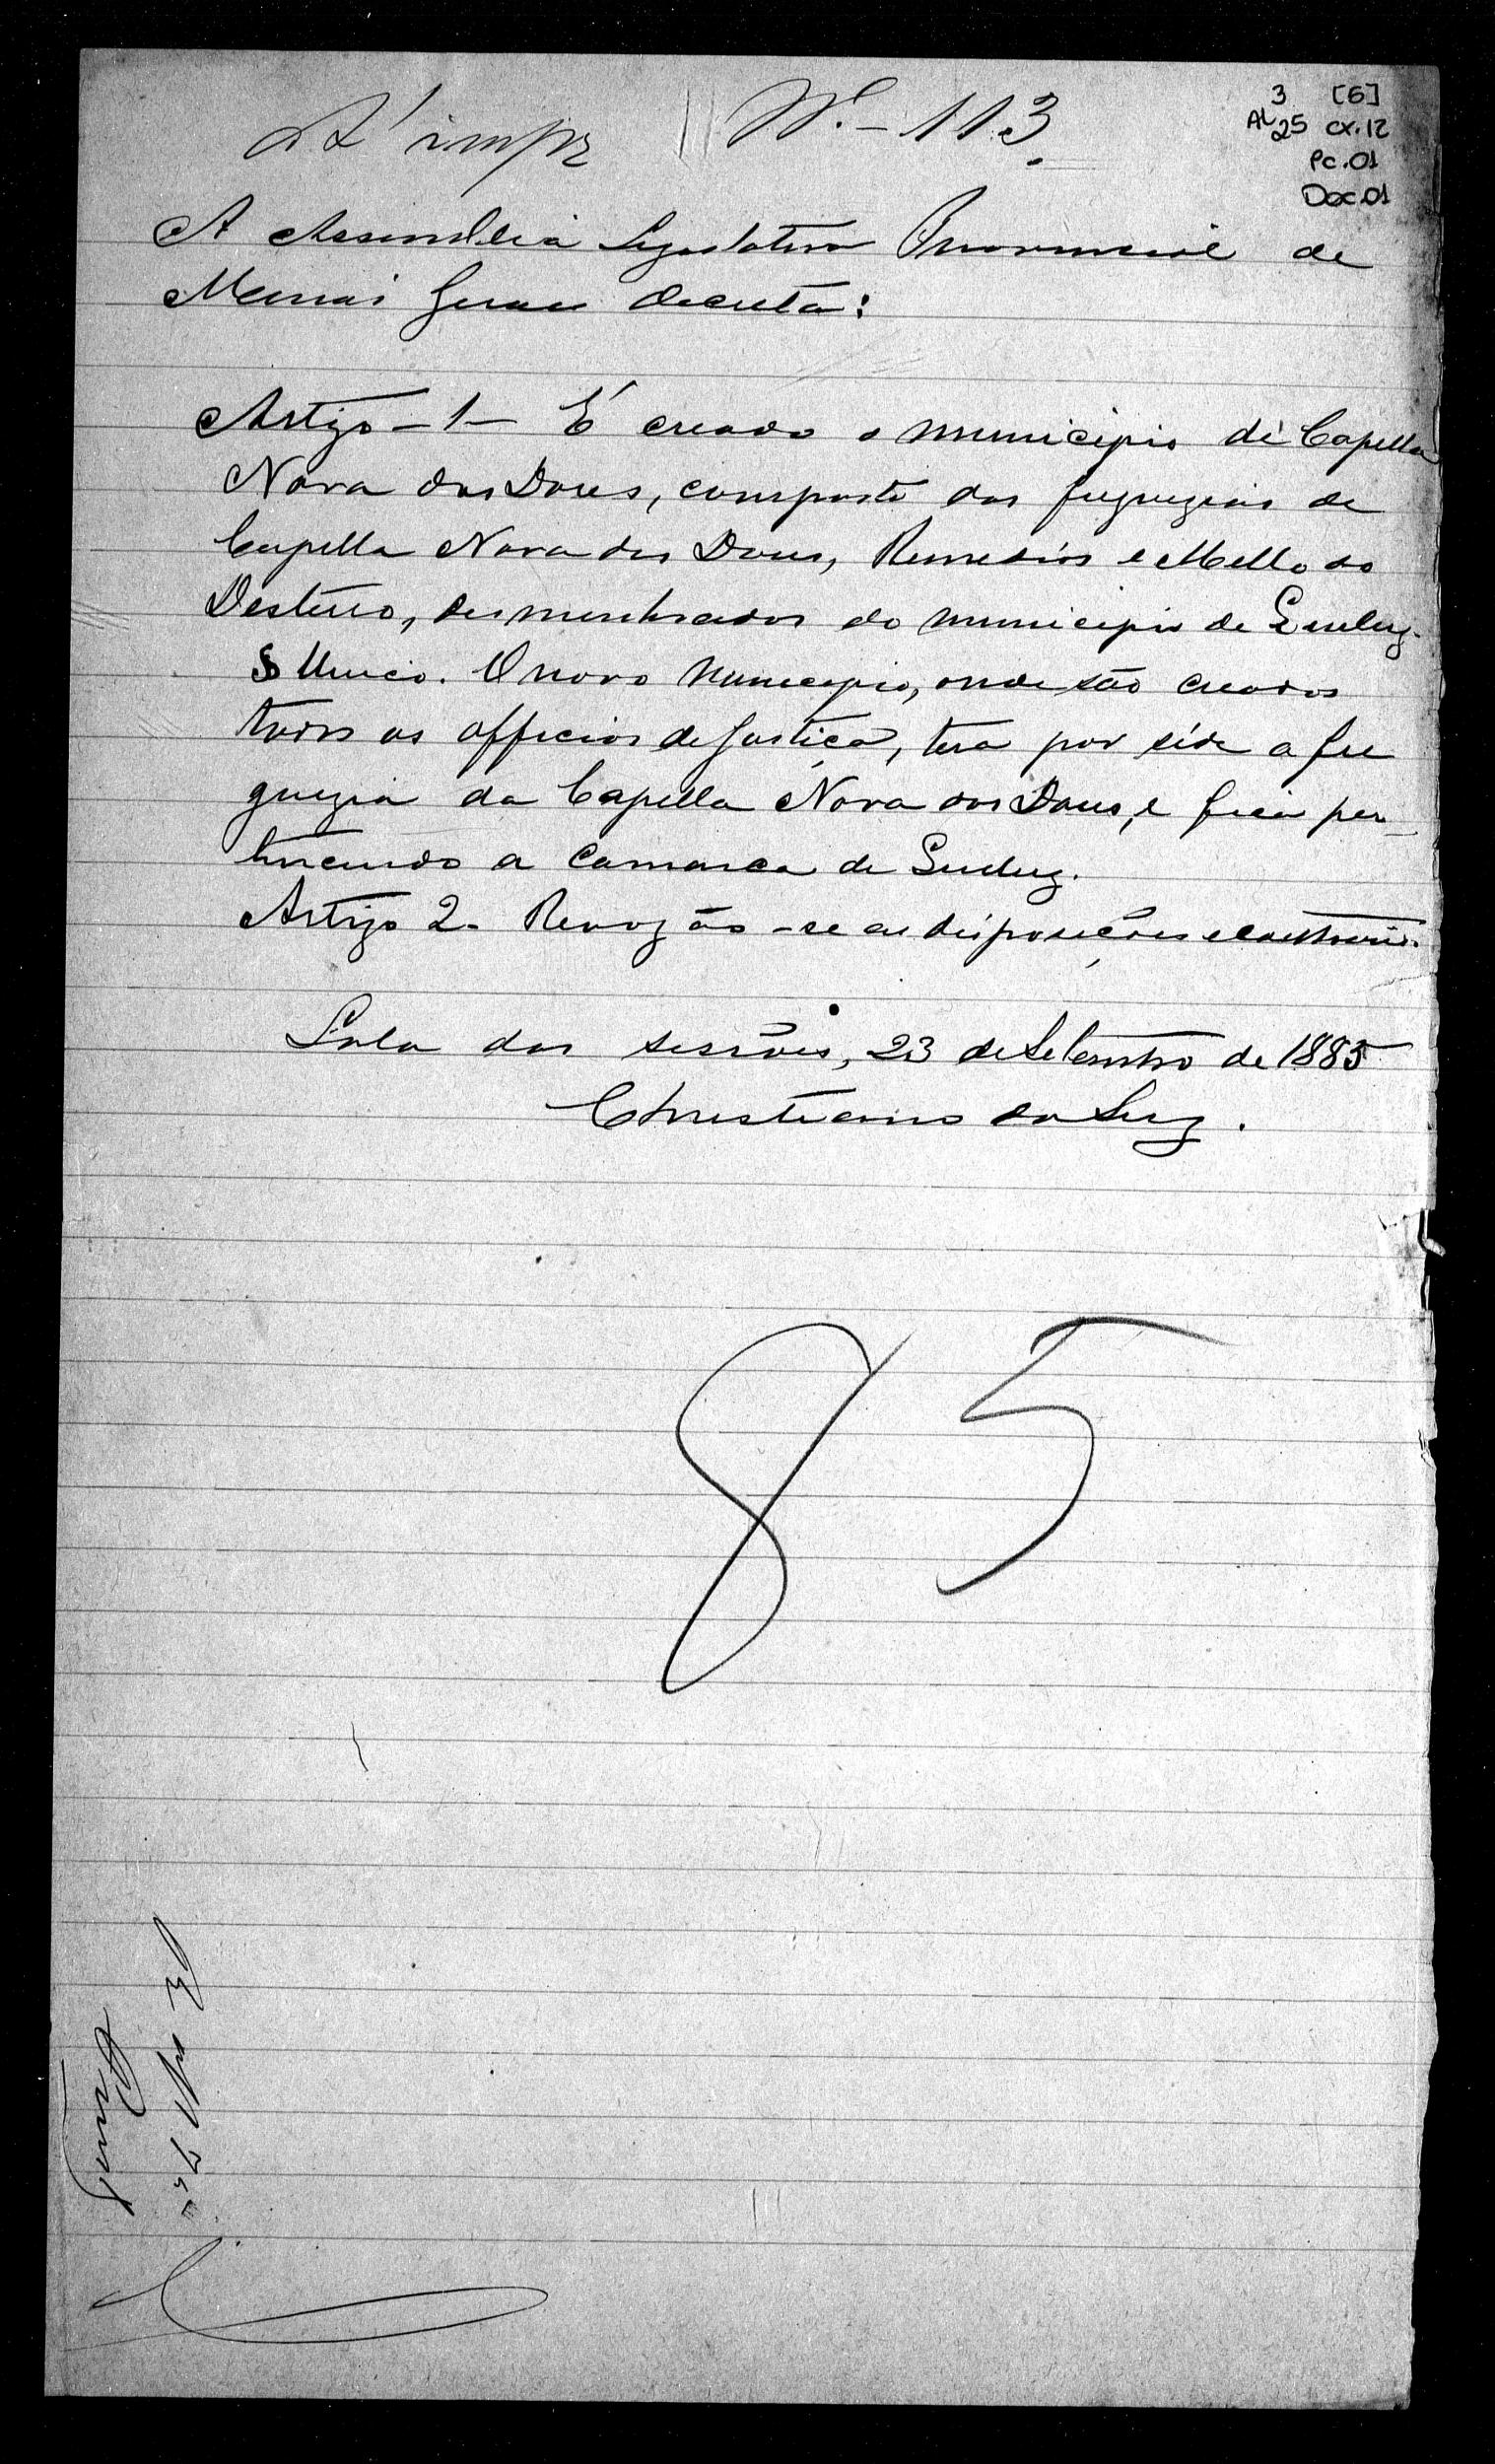 A' impr Nº - 113.
3 [6]
AL 25 cx. 12
Pc. 01
Doc. 01
A Assembléa Legislativa Provincial de
Minas Geraes decreta:
Artigo - 1 - É creado o municipio de Capella
Nova das Dores, composto das freguezias de
Capella Nova das Dores, Remedios e Mello do
Desterro, desmembrados do municipio de Queluz.
§ Unico. O novo municipio, onde são creados
todos os officios de justiça, terá por séde a fre
guezia da Capella Nova das Dores, e fica per-
tencendo a comarca de Queluz.
Artigo 2 - Revogão-se as disposições
Sala das sessões, 23 de Setembro de 1885
Christiano da Luz.
85